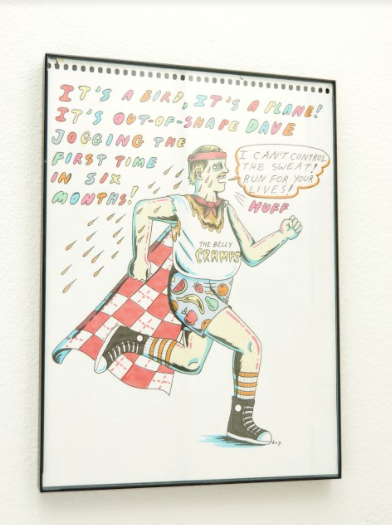 IT'S A BIRD, IT'S A PLANE!
IT'S OUT-OF-SHAPE DAVE
JOGGING THE
FIRST TIME
IN SIX
MONTHS!
I CAN'T CONTROL
THE SWEAT!
RUN FOR YOUR
LIVES!
HUFF
THE BELLY
CRAMPS